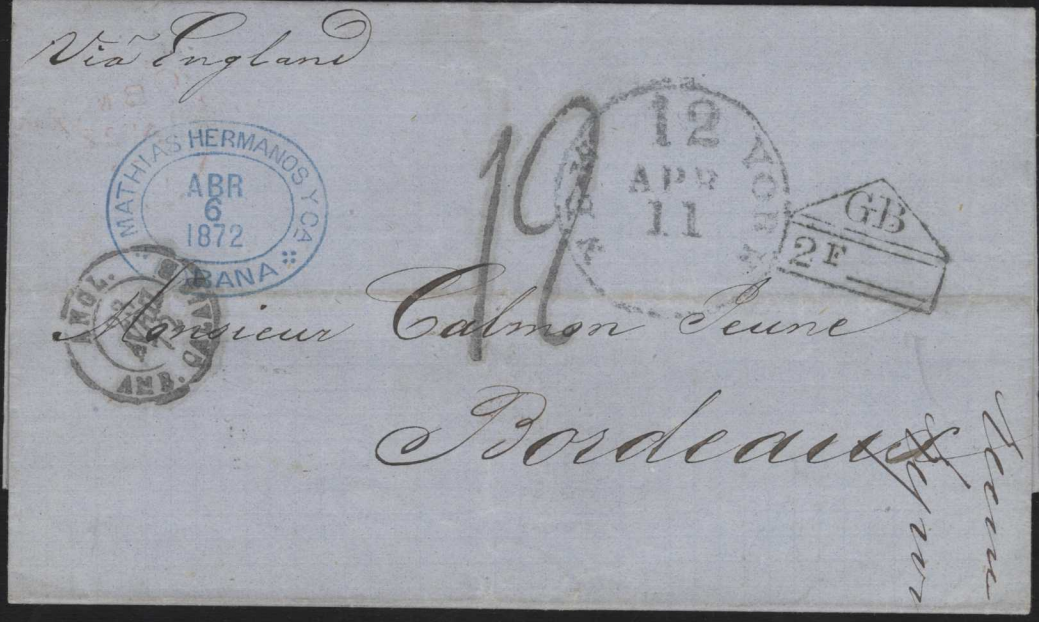 Via England
MATHIAS HERMANOS Y CA
ABR
6
1872
HABANA
12
NEW YORK
APR
11
GB
2F
ANGL.
AMB. CALAIS
Monsieur Calmon Jeune
Bordeaux